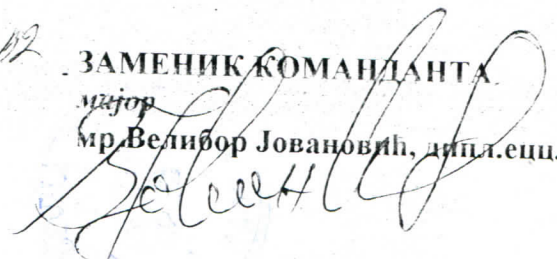 ЗАМЕНИК КОМАНДАНТА
мајор
мр Велибор Јовановић, дипл.ецц.